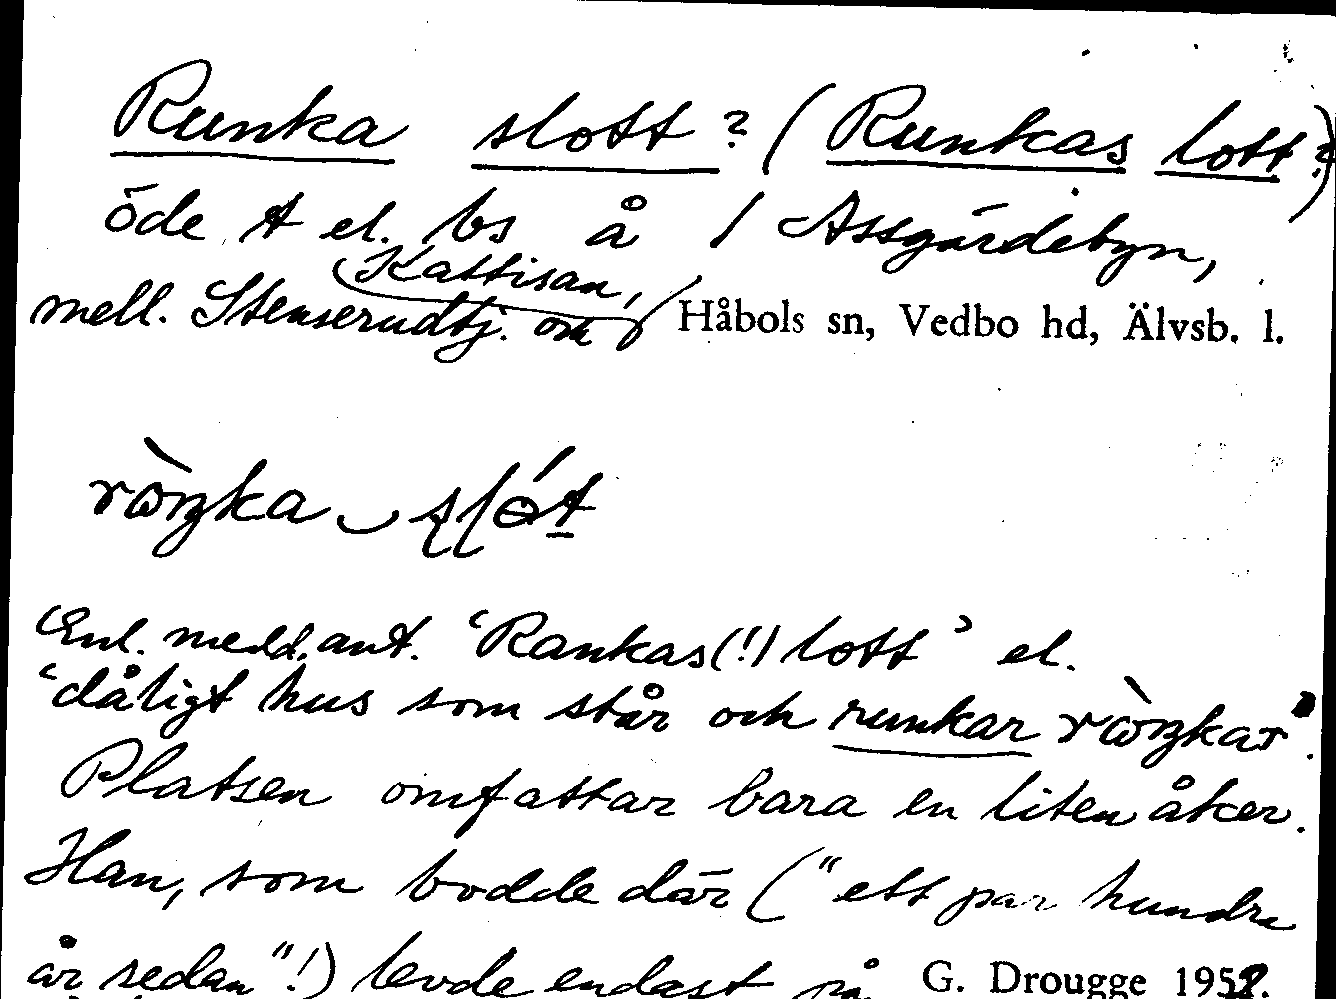 Runka slott? (Runkas lott?)
öde t el. bs å / Assgärdebyn,
Kattisan,
mell. Stenserudtj. och Håbols sn, Vedbo hd, Älvsb. l.
Enl. medd. ant. ‘Rankas(!) lott’ el.
‘dåligt hus som står och runkar
Platsen omfattar bara en liten åker.
Han, som bodde där ("ett par hundra
år sedan"!) levde endast på G. Drougge 1952.